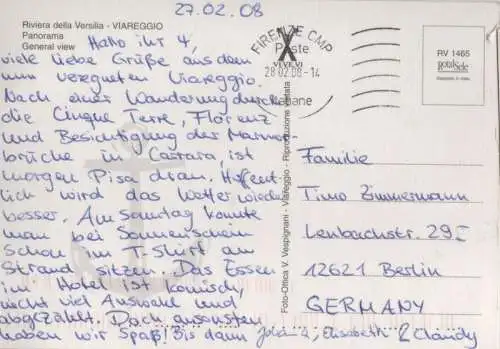 27.02.08
Riviera della Versilia - VIAREGGIO
Panorama
General view
Hallo ihr 4,
viele liebe Grüße aus dem
nun verregneten Viareggio.
Nach einer Wanderung durch
die Cinque Terre, Florenz
und Besichtigung der Marmor-
brüche in Carrara, ist
morgen Pisa dran. Hoffent-
lich wird das Wetter wieder
besser. Am Samstag konnte
man bei Sonnenschein
schon im T-Shirt am
Strand sitzen. Das Essen
im Hotel ist komisch,
nicht viel Auswahl und
abgezählt. Doch ansonsten
haben wir Spaß! Bis dann Elisabeth & Claudy
FIRENZE CMP
Poste
28.02.08-14
Italiane
Foto-Ottica V. Vespignani - Viareggio - Riproduzione vietata
RV 1465
Familie
Timo Zimmermann
Lenbachstr. 29 I
12621 Berlin
GERMANY